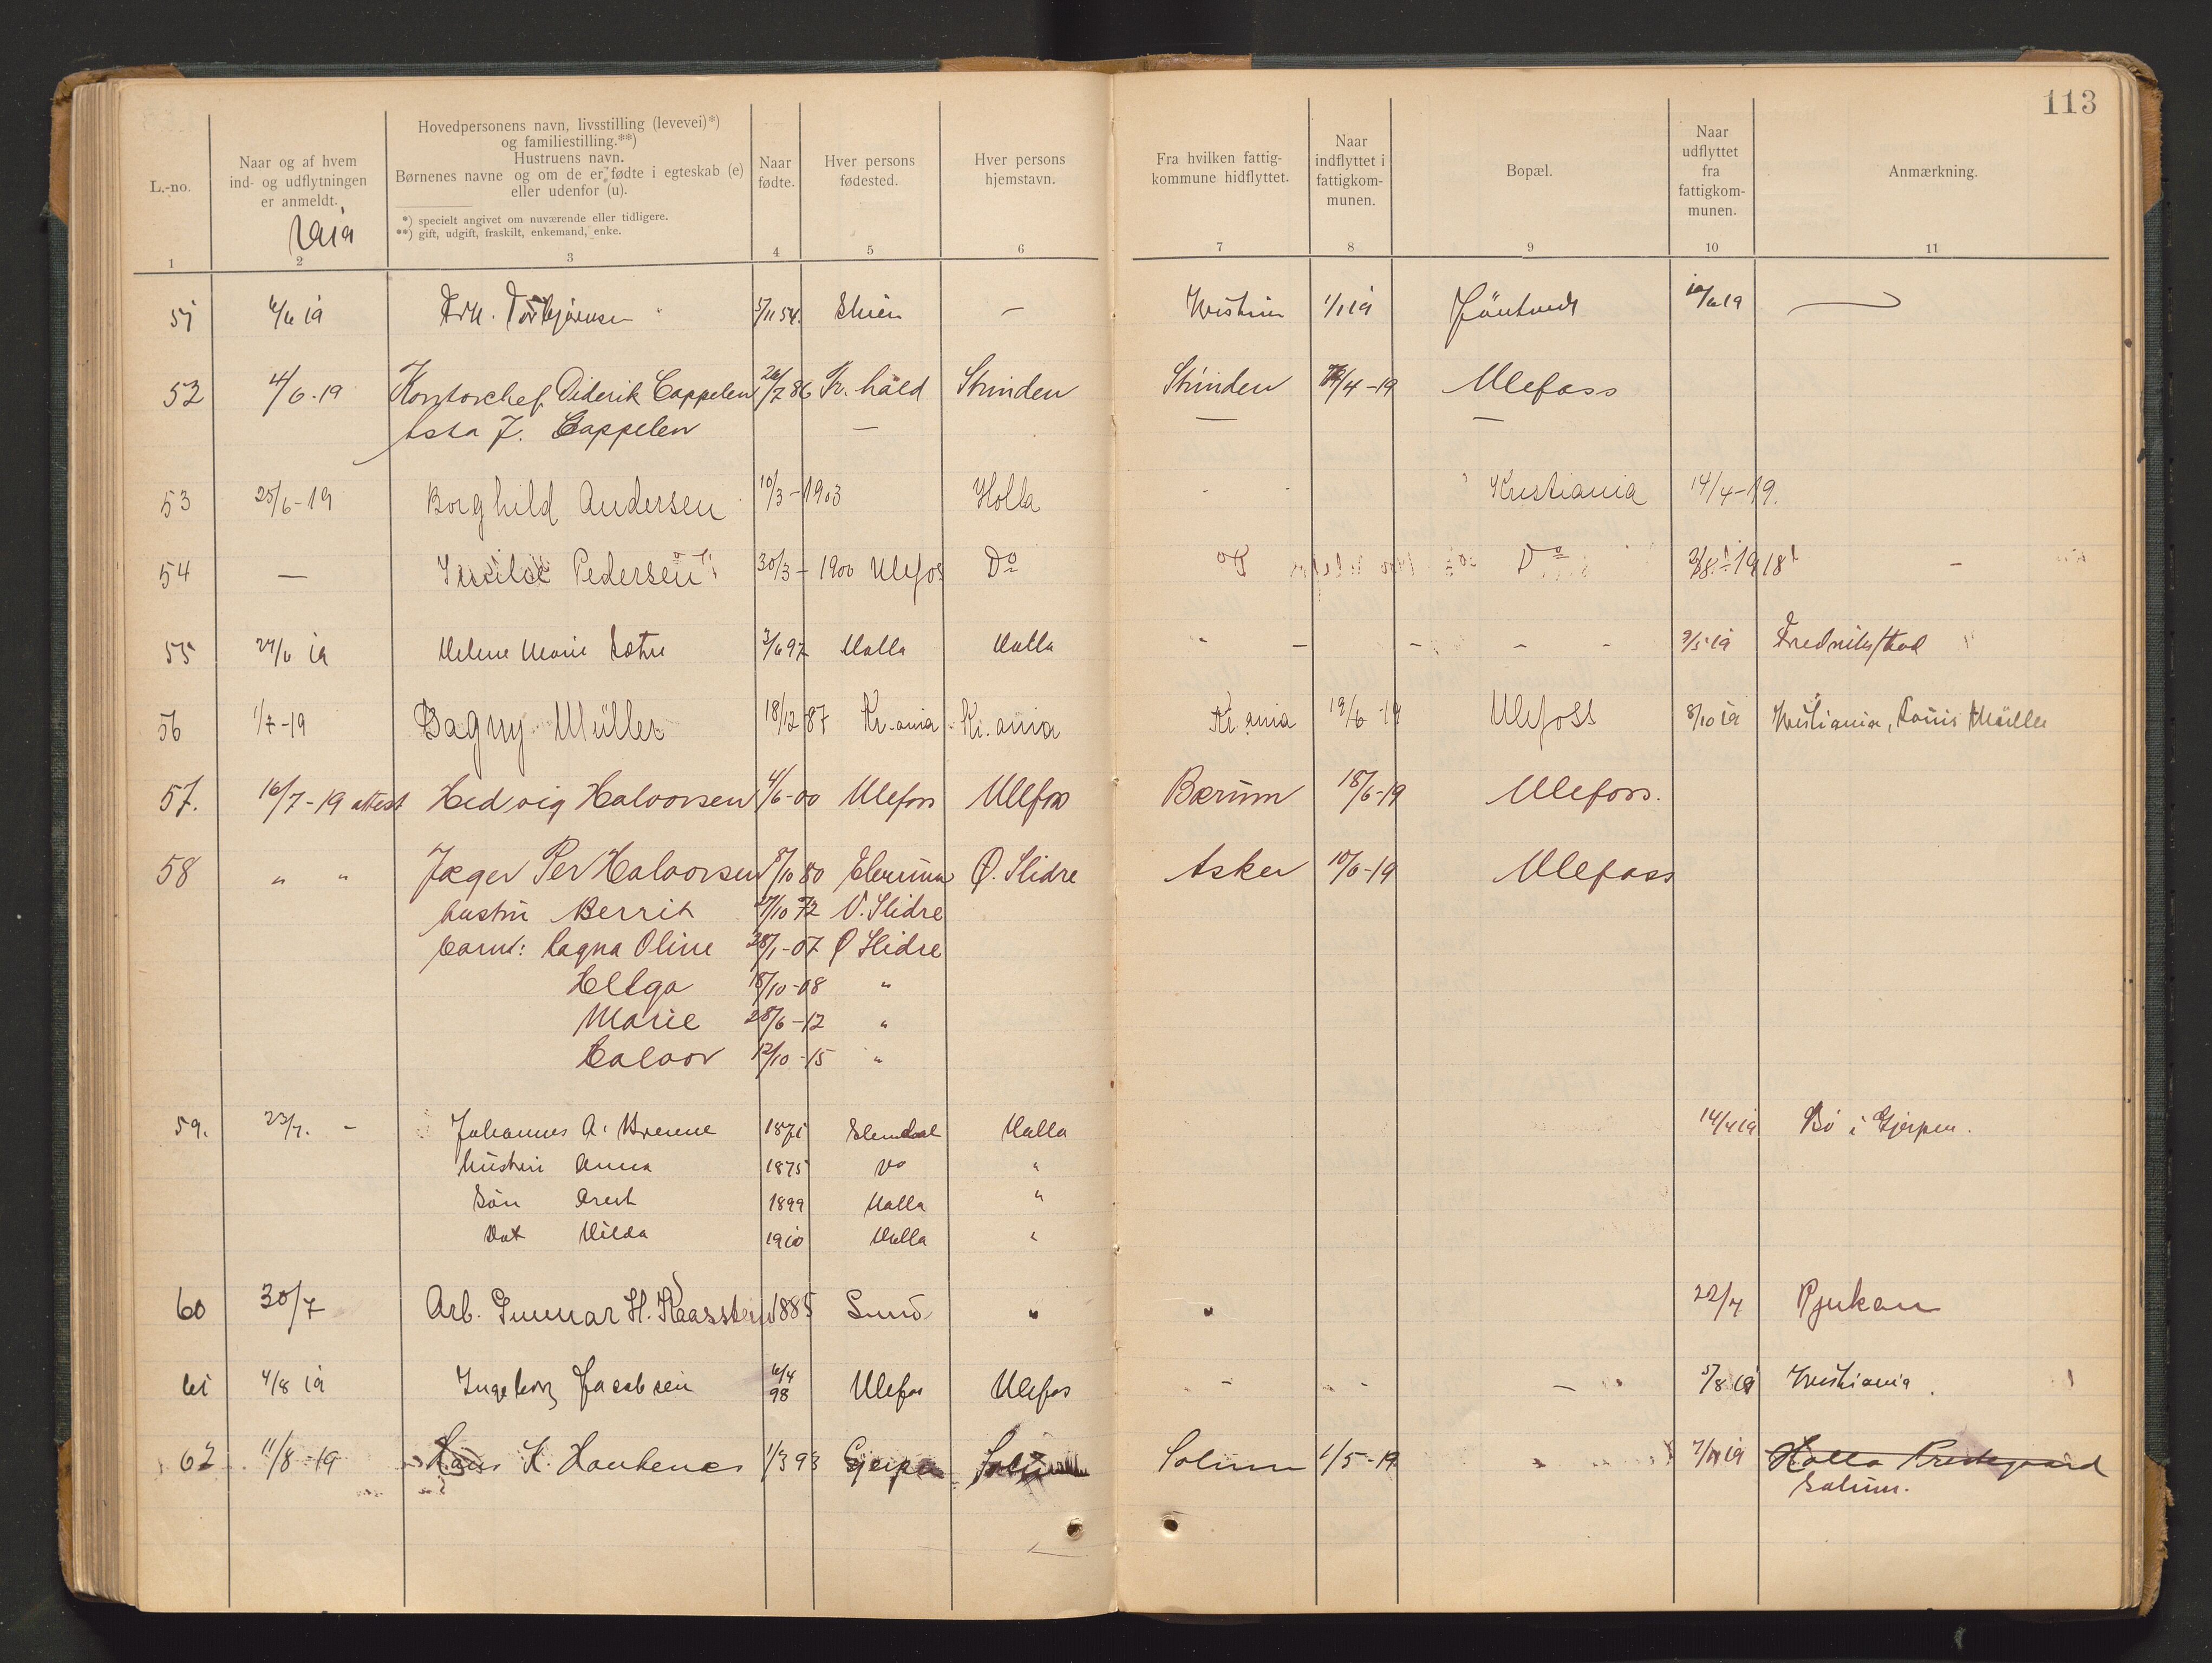 113
L.-no.
Naar og af hvem
ind- og udflytningen
er anmeldt.
Hovedpersonens navn, livsstilling (levevei)*)
og familiestilling.**)
Hustruens navn.
Børnenes navne og om de er fødte i egteskab (e)
eller udenfor (u).
*) specielt angivet om nuværende eller tidligere.
**) gift, udgift, fraskilt, enkemand, enke.
Naar
fødte.
Hver persons
fødested.
Hver persons
hjemstavn.
Fra hvilken fattig-
kommune hidflyttet.
Naar
indflyttet i
fattigkom-
munen.
Bopæl.
Naar
udflyttet
fra
fattigkom-
munen.
Anmærkning.
1 2 3 4 5 6 7 8 9 10 11
51 4/6 19 Torbjørnsen 5/11 54. Skien — 1/1 19 10/6 19
52 4/6-19 Kontorchef Diderik Cappelen 26/7 86 Fr. hald Strinden Strinden /4-19 Ulefoss
Asta J. Cappelen — — —
53 25/6-19 Borghild Andersen 10/3-1903 Holla Kristiania 14/4-19.
54 — Pedersen 30/3-1900 Ulefos Do Do Do 3/8-1918
55 27/6 19 Helene Marie Sætre 3/6 97 Holla Holla - - - - - 9/5 19 Fredrikstad
56 1/7-19 Dagny Müller 18/12 87 Kr.ania Kr.ania Kr.ania 19/6-19 Ulefoss 8/10 19 Kristiania, Louis Müller
57. 16/7-19 attest Hedvig Halvorsen 4/6-00 Ulefoss Ulefoss Bærum 18/6-19 Ulefoss.
58 " " Jæger Per Halvorsen 8/10 80 Elverum Ø. Slidre Asker 10/6-19 Ulefoss
hustru Berrit /10 72 V. Slidre
barn: Ragna Oline 28/1-07 Ø Slidre
Helga 18/10-08 "
Marie 28/6-12 "
Halvor 12/10-15 "
59. 23/7. - Johannes A. 1871 Holla 14/4 19 Bö i Gjerpen.
hustru Anna 1875 Do "
Sön Arent 1899 Holla "
Dat Hilda 1910 Holla "
60 30/7 Arb. Gunnar H. Kaasstein 1885 Lund " " 22/7 Rjukan
61 4/8 19 Ingeborg Jacobsen 6/4 98 Ulefos Ulefos - - - 5/8 19 Kristiania.
62 11/8-19 K. Haukenes 1/3 93 Gjerpen Solum Solum 1/5-19 " Holla Prestegaard
Solum.